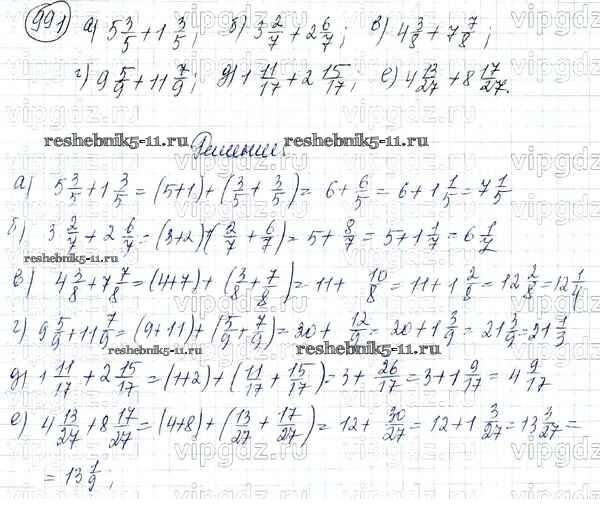 991 а) 5 3/5 + 1 3/5; б) 3 2/7 + 2 6/7; в) 4 3/8 + 7 7/8;
г) 9 5/9 + 11 7/9; д) 1 11/17 + 2 15/17; е) 4 13/27 + 8 17/27.
reshebnik5-11.ru Решение: reshebnik5-11.ru
а) 5 3/5 + 1 3/5 = (5+1) + (3/5 + 3/5) = 6 + 6/5 = 6 + 1 1/5 = 7 1/5
б) 3 2/7 + 2 6/7 = (3+2)+(2/7 + 6/7) = 5 + 8/7 = 5 + 1 1/7 = 6 1/7
reshebnik5-11.ru
в) 4 3/8 + 7 7/8 = (4+7) + (3/8 + 7/8) = 11 + 10/8 = 11 + 1 2/8 = 12 2/8 = 12 1/4
г) 9 5/9 + 11 7/9 = (9+11) + (5/9 + 7/9) = 20 + 12/9 = 20 + 1 3/9 = 21 3/9 = 21 1/3
reshebnik5-11.ru
д) 1 11/17 + 2 15/17 = (1+2) + (11/17 + 15/17) = 3 + 26/17 = 3 + 1 9/17 = 4 9/17
е) 4 13/27 + 8 17/27 = (4+8) + (13/27 + 17/27) = 12 + 30/27 = 12 + 1 3/27 = 13 3/27 =
= 13 1/9;
reshebnik5-11.ru
vipgdz.ru